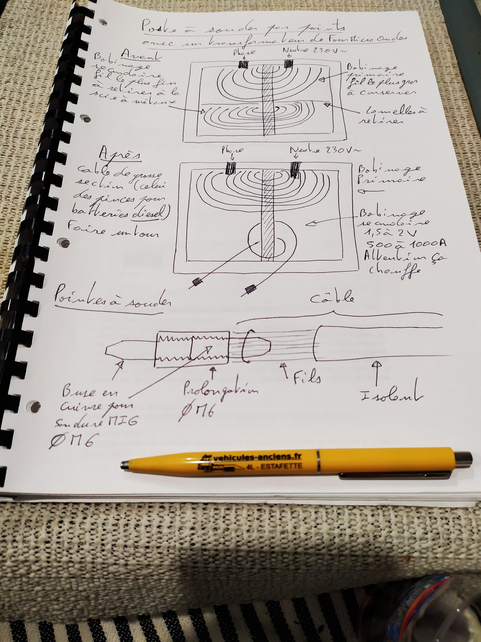 Poste à souder par points
avec un transformateur de Four Micro Ondes
Avant
Phase
Neutre 230V~
Bobinage
secondaire
fil le plus fin
à retirer à la
scie à métaux
Bobinage
primaire
fil le plus gros
à conserver
Lamelles à
retirer
Après
Phase
Neutre 230V~
Cable de grosse
section (celui
des pinces pour
batteries diesel)
Faire un tour
Bobinage
Primaire
Bobinage
secondaire
1,5 à 2V
500 à 1000A
Attention ça
chauffe
Pointes à souder
Câble
Buse en
Cuivre pour
soudure MIG
Ø M6
Prolongation
Ø M6
Fils
Isolent
vehicules-anciens.fr
4L - ESTAFETTE